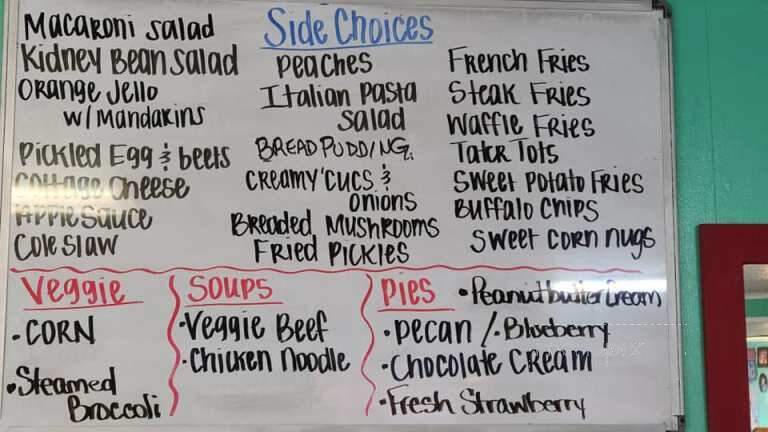 Side Choices
Macaroni Salad
Kidney Bean Salad
Orange Jello
w/ Mandarins
Pickled Egg & beets
Cottage Cheese
Applesauce
Coleslaw
Peaches
Italian Pasta
Salad
BREAD PUDDING
Creamy Cucs &
Onions
Breaded Mushrooms
Fried Pickles
French Fries
Steak Fries
Waffle Fries
Tator Tots
Sweet Potato Fries
Buffalo Chips
Sweet Corn Nugs
Veggie
• CORN
• Steamed
Broccoli
Soups
• Veggie Beef
• Chicken Noodle
Pies
• Peanutbutter Cream
• Pecan / • Blueberry
• Chocolate Cream
• Fresh Strawberry